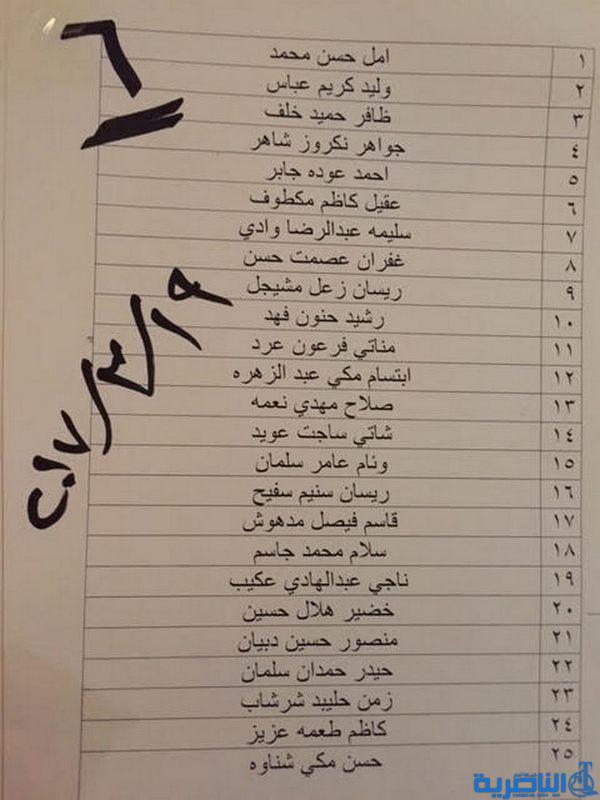 ٦
١ امل حسن محمد
٢ وليد كريم عباس
٣ ظافر حميد خلف
٤ جواهر نكروز شاهر
٥ احمد عوده جابر
٦ عقيل كاظم مكطوف
٧ سليمه عبدالرضا وادي
٨ غفران عصمت حسن
٩ ريسان زعل مشيجل
١٠ رشيد حنون فهد
١١ مناتي فرعون عرد
١٢ ابتسام مكي عبد الزهره
١٣ صلاح مهدي نعمه
١٤ شاتي ساجت عويد
١٥ وئام عامر سلمان
١٦ ريسان سنيم سفيح
١٧ قاسم فيصل مدهوش
١٨ سلام محمد جاسم
١٩ ناجي عبدالهادي عكيب
٢٠ خضير هلال حسين
٢١ منصور حسين دبيان
٢٢ حيدر حمدان سلمان
٢٣ زمن حليبد شرشاب
٢٤ كاظم طعمه عزيز
٢٥ حسن مكي شناوه
الناصرية